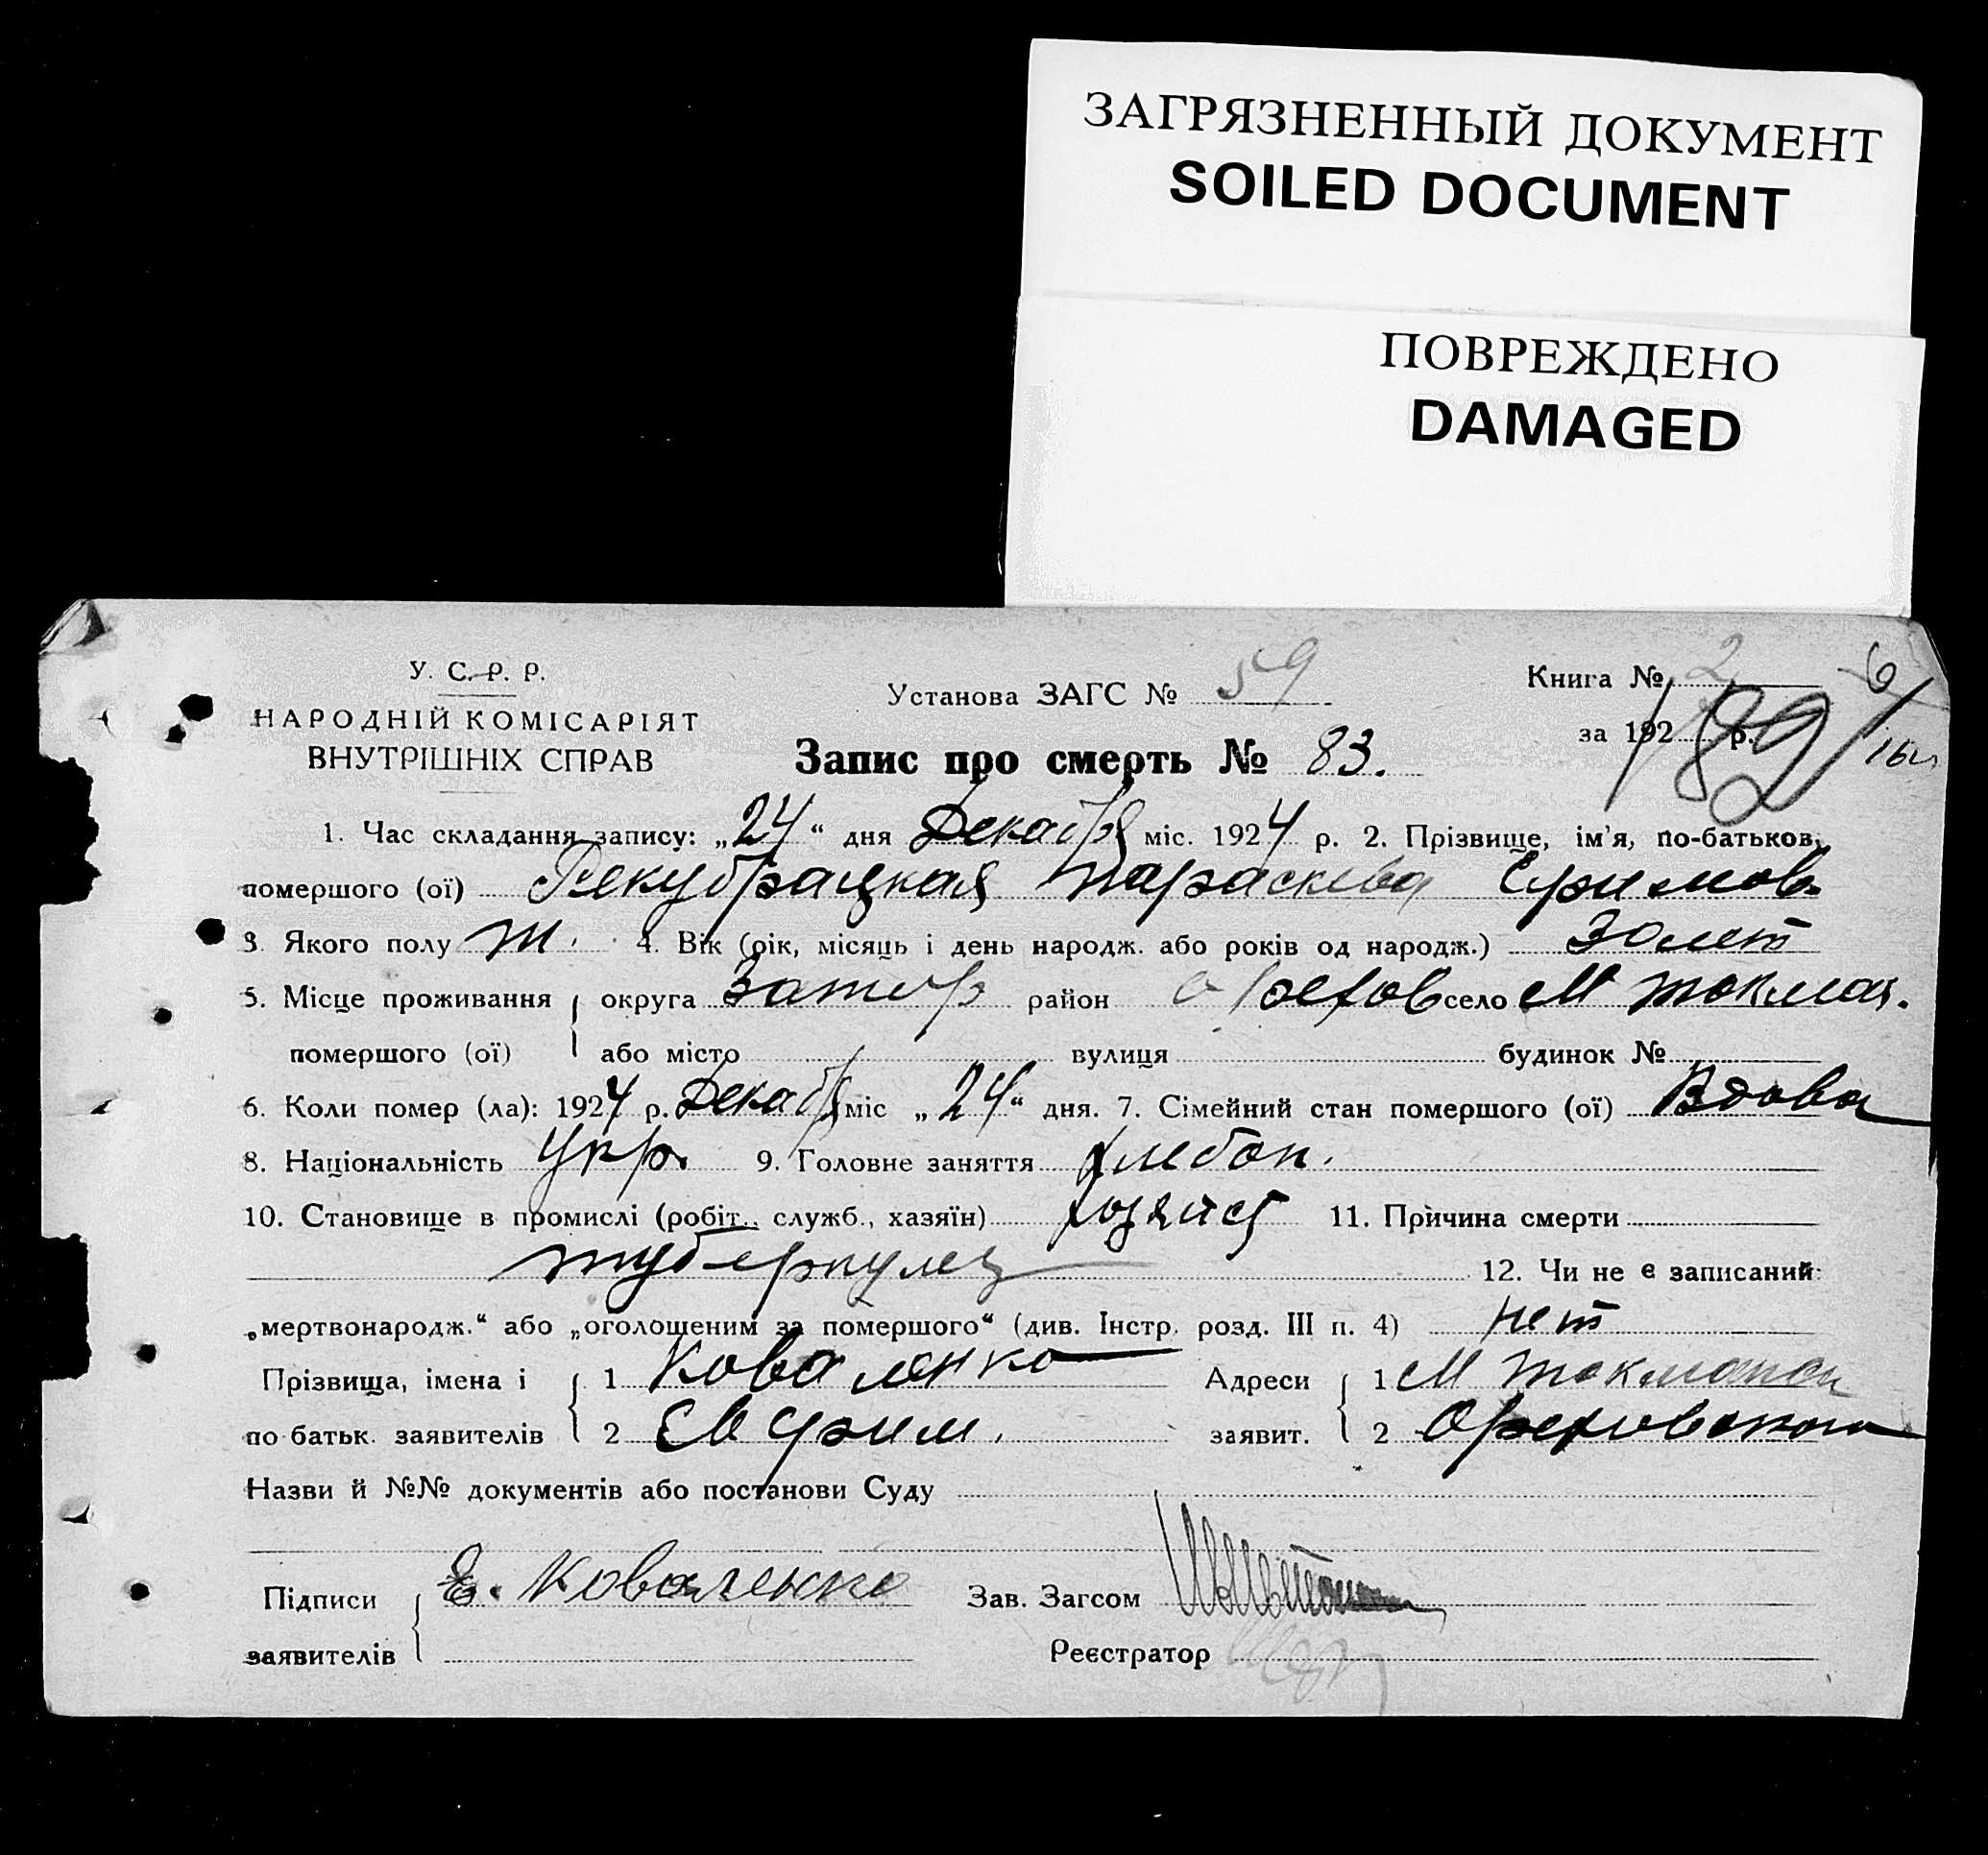 ЗАГРЯЗНЕННЫЙ ДОКУМЕНТ
SOILED DOCUMENT
ПОВРЕЖДЕНО
DAMAGED
У. С. Р. Р.
НАРОДНІЙ КОМІСАРІЯТ
ВНУТРІШНІХ СПРАВ
Установа ЗАГС № 59
Книга № 2
за 192 р.
Запис про смерть № 83.
1. Час складання запису: „24“ дня Декабря міс. 1924 р. 2. Прізвище, ім'я, по-батьков.
помершого (ої) Рекубрацкая Параскева Ефимов.
3. Якого полу ж. 4. Вік (рік, місяць і день народж. або років од народж.) 30 лет
5. Місце проживання округа Запор район Орехов село М Токмач.
помершого (ої) або місто вулиця будинок №
6. Коли помер (ла): 1924 р. Декабря міс „24“ дня. 7. Сімейний стан помершого (ої) Вдова
8. Національність Укр. 9. Головне заняття хлебоп.
10. Становище в промислі (робіт., служб., хазяїн) 11. Причина смерти
туберкулез 12. Чи не є записаний
„мертвонародж.“ або „оголошеним за помершого“ (див. Інстр. розд. III п. 4) нет
Прізвища, імена і 1 Коваленко Адреси 1 М Токмачки
по батьк. заявителів 2 Ефим. заявит. 2 Ореховского
Назви й №№ документів або постанови Суду
Підписи Е. Коваленко Зав. Загсом
заявителів Реєстратор